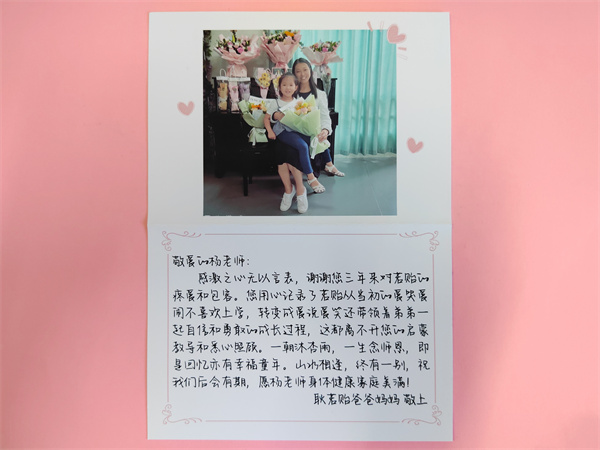 敬爱的杨老师:
感激之心无以言表，谢谢您三年来对若贻的
疼爱和包容。您用心记录了若贻从当初的爱哭爱
闹不喜欢上学，转变成爱说爱笑还带领着弟弟一
起自信和勇敢的成长过程，这都离不开您的启蒙
教导和悉心照顾。一朝沐杏雨，一生念师恩，即
是回忆亦有幸福童年。山水相逢，终有一别，祝
我们后会有期，愿杨老师身体健康家庭美满!
耿若贻爸爸妈妈 敬上